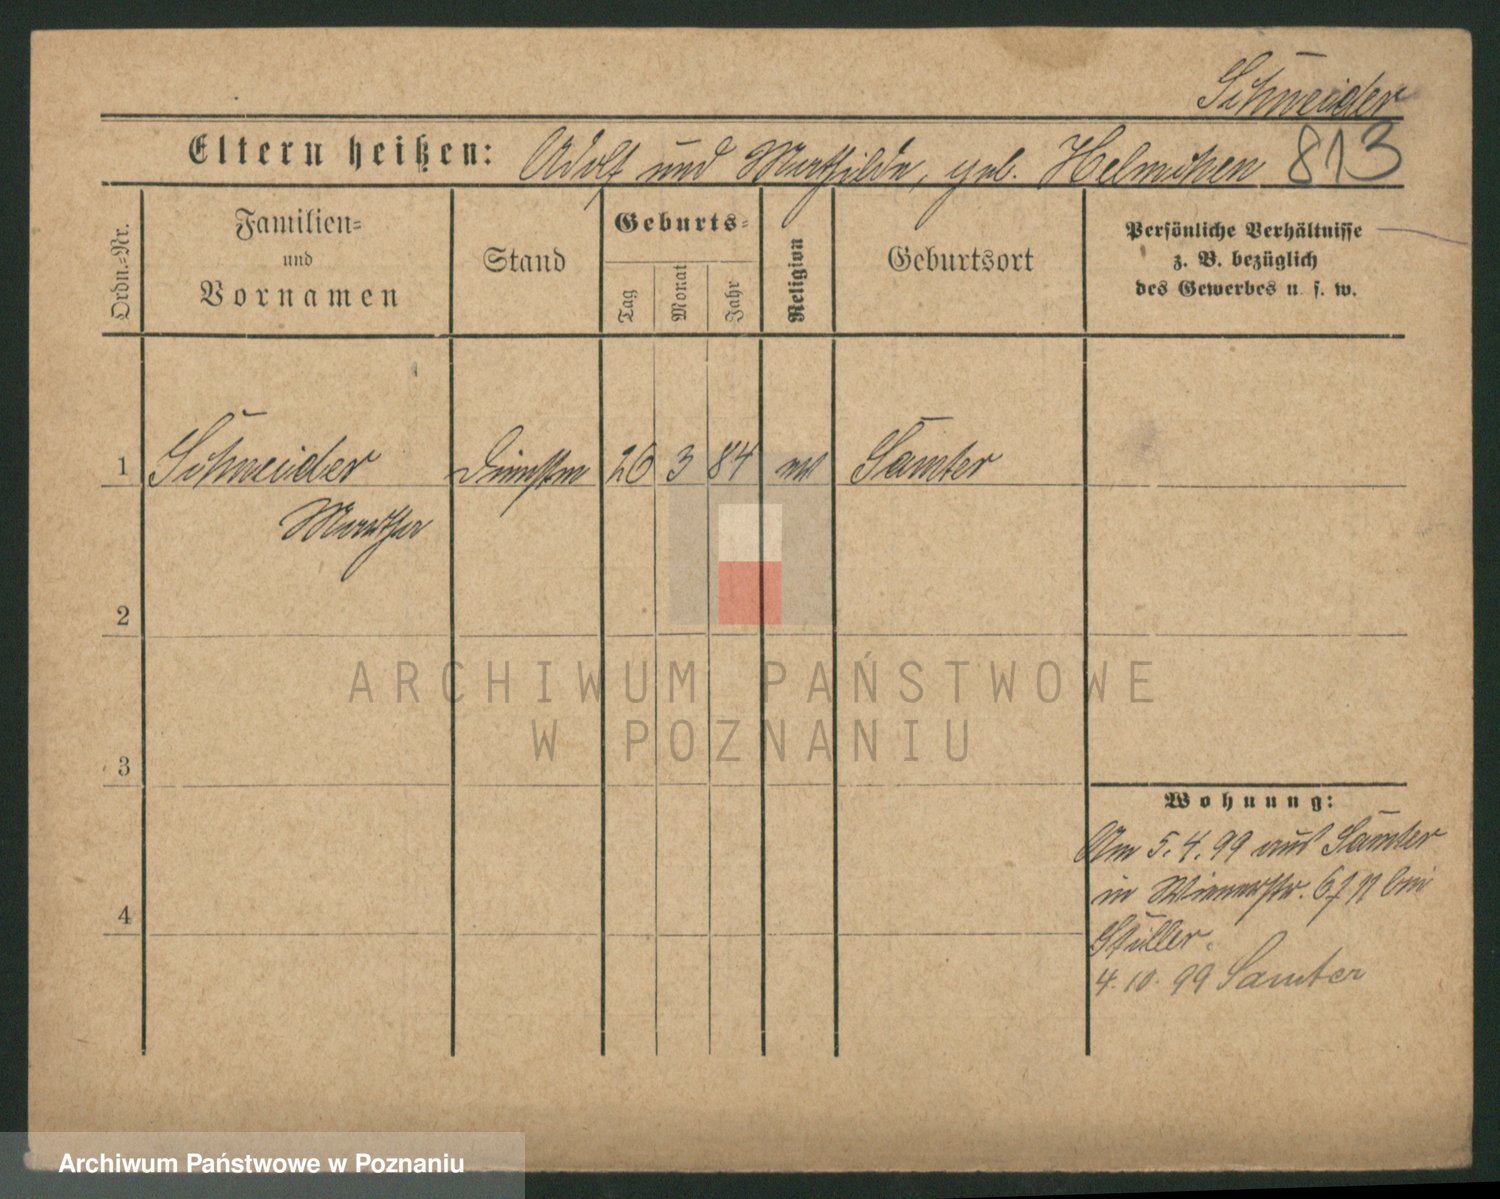 Schneider
Eltern heißen: Adolf und Mathilde, geb. Helmchen 813
Ordn.-Nr.
Familien-
und
Vornamen
Stand
Geburts-
Tag
Monat
Jahr
Religion
Geburtsort
Persönliche Verhältnisse
z. B. bezüglich
des Gewerbes u. s. w.
1 Schneider 26 3 84 ev Samter
Martha
2
3
4
Wohnung:
Am 5.4.99 aus Samter
in Wienerstr. bei
Stüller.
4.10.99 Samter
ARCHIWUM PAŃSTWOWE
W POZNANIU
Archiwum Państwowe w Poznaniu